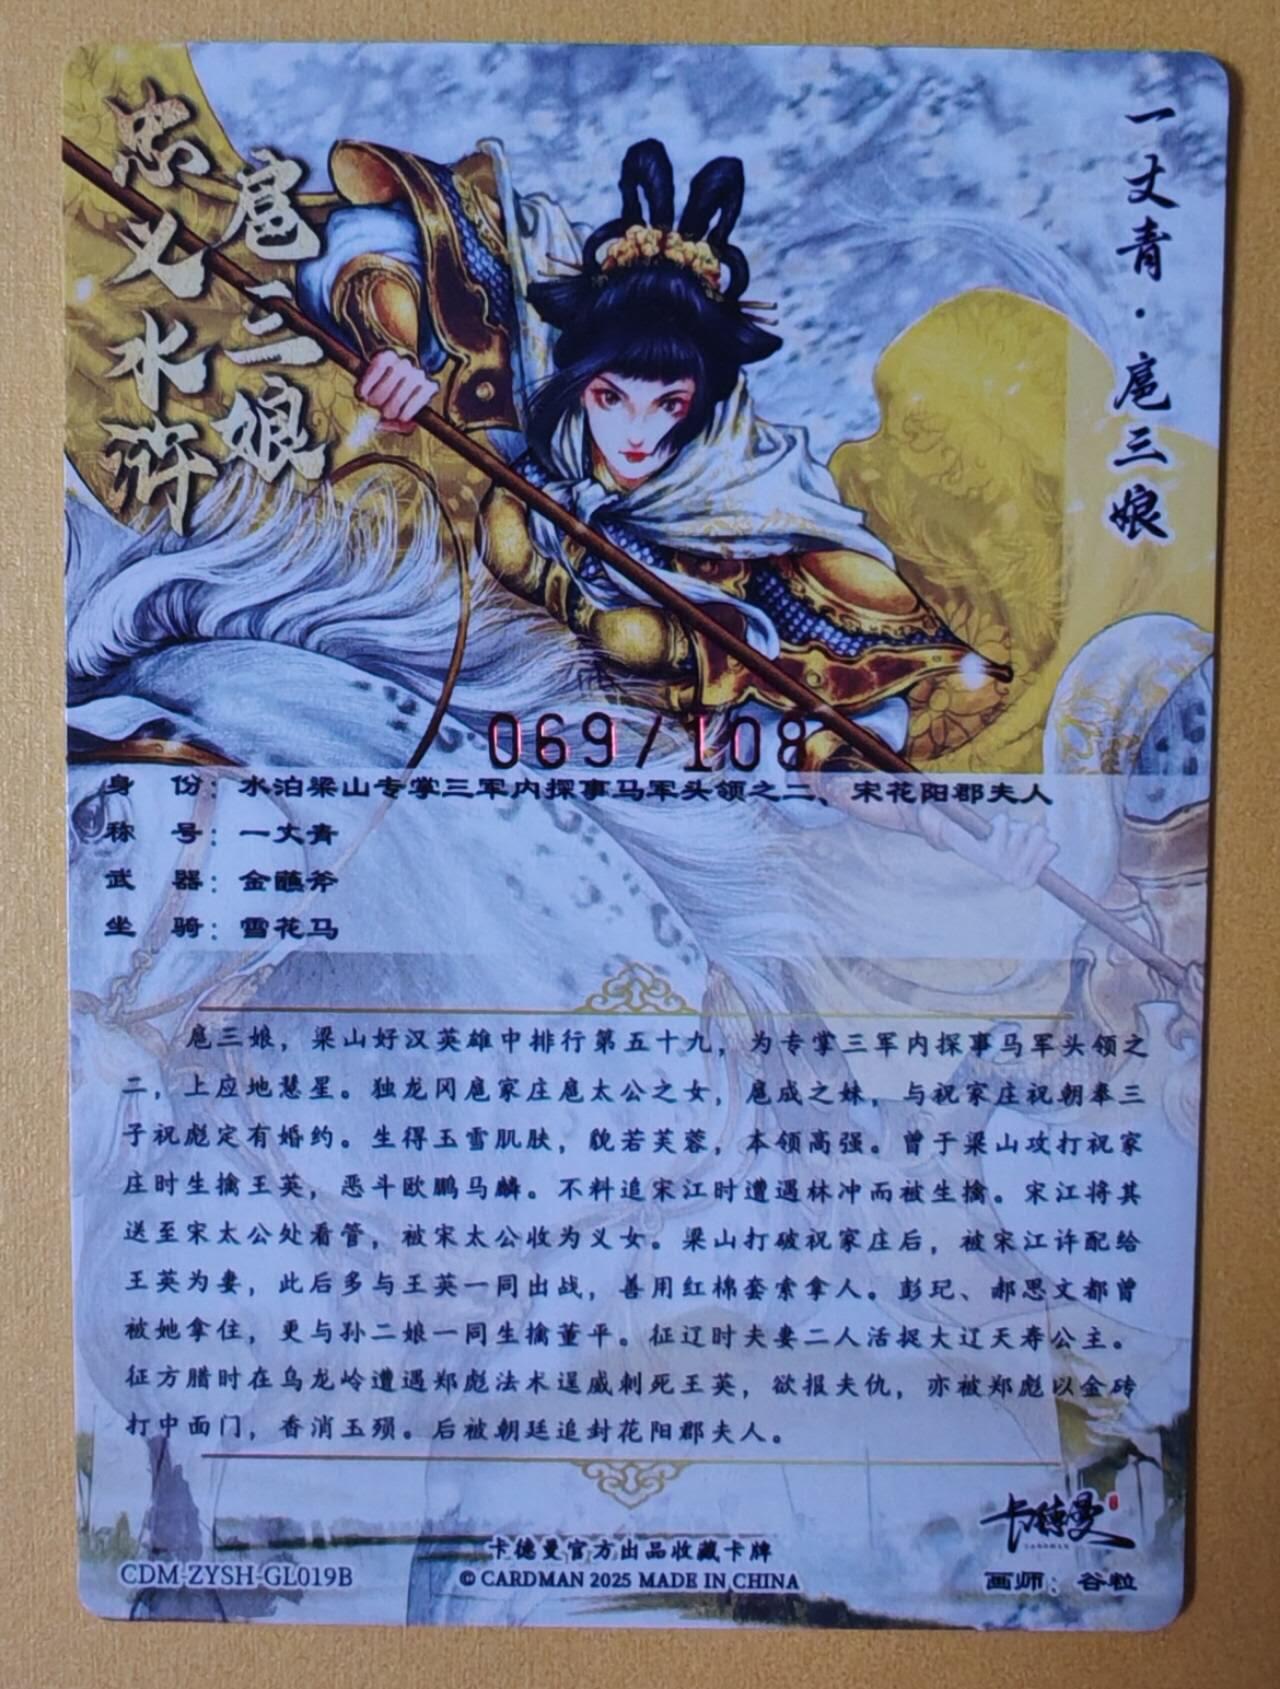 忠义水浒
扈三娘
一丈青·扈三娘
069/108
身 份：水泊梁山专掌三军内探事马军头领之二、宋花阳郡夫人
称 号：一丈青
武 器：金蘸斧
坐 骑：雪花马
扈三娘，梁山好汉英雄中排行第五十九，为专掌三军内探事马军头领之
二，上应地慧星。独龙冈扈家庄扈太公之女，扈成之妹，与祝家庄祝朝奉三
子祝彪定有婚约。生得玉雪肌肤，貌若芙蓉，本领高强。曾于梁山攻打祝家
庄时生擒王英，恶斗欧鹏马麟。不料追宋江时遭遇林冲而被生擒。宋江将其
送至宋太公处看管，被宋太公收为义女。梁山打破祝家庄后，被宋江许配给
王英为妻，此后多与王英一同出战，善用红棉套索拿人。彭玘、郝思文都曾
被她拿住，更与孙二娘一同生擒董平。征辽时夫妻二人活捉大辽天寿公主。
征方腊时在乌龙岭遭遇郑彪法术逞威刺死王英，欲报夫仇，亦被郑彪以金砖
打中面门，香消玉殒。后被朝廷追封花阳郡夫人。
卡德曼
卡德曼官方出品收藏卡牌
CDM-ZYSH-GL019B
© CARDMAN 2025 MADE IN CHINA
画师：谷粒